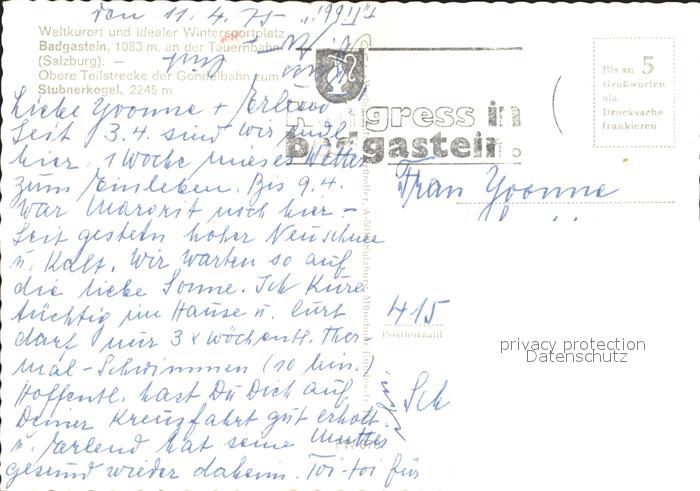 den 11.4.75
Weltkurort und idealer Wintersportplatz
Badgastein, 1083 m, an der Tauernbahn
(Salzburg). —
Obere Teilstrecke der Gondelbahn zum
Stubnerkogel, 2245 m
Liebe Yvonne + Erlend
Seit 3.4. sind wir
hier. 1 Woche mieses Wetter
zum Einleben. Bis 9.4.
war Margrit noch hier –
Seit gestern hoher Neuschnee
u. Kalt. Wir warten so auf
die liebe Sonne. Ich Kure
tüchtig im Hause u. Curt
darf nur 3 x wöchentl. Ther
mal-Schwimmen (10 min.)
Hoffentl. hast Du Dich auf
Deiner Kreuzfahrt gut erholt
u. Erlend hat seine Mutter
gesund wieder daheim. Toi-toi für
Kongress in
badgastein.
Bis zu 5
Grußworten
als
Drucksache
frankieren
Frau Yvonne
415
Postleitzahl
privacy protection
Datenschutz